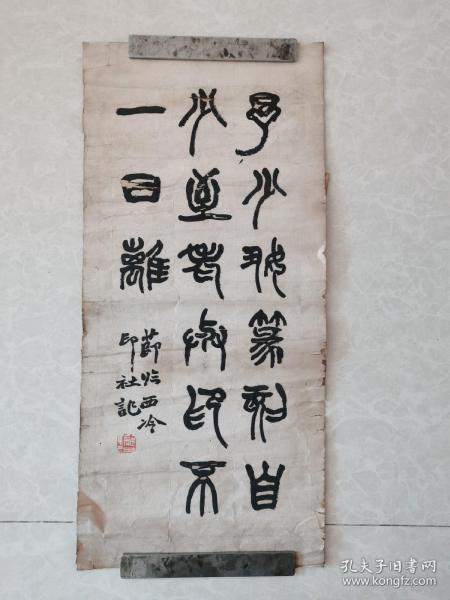 予少好篆刻自
少至老與印不
一日離
節临西冷
印社記
孔夫子旧书网
www.kongfz.com